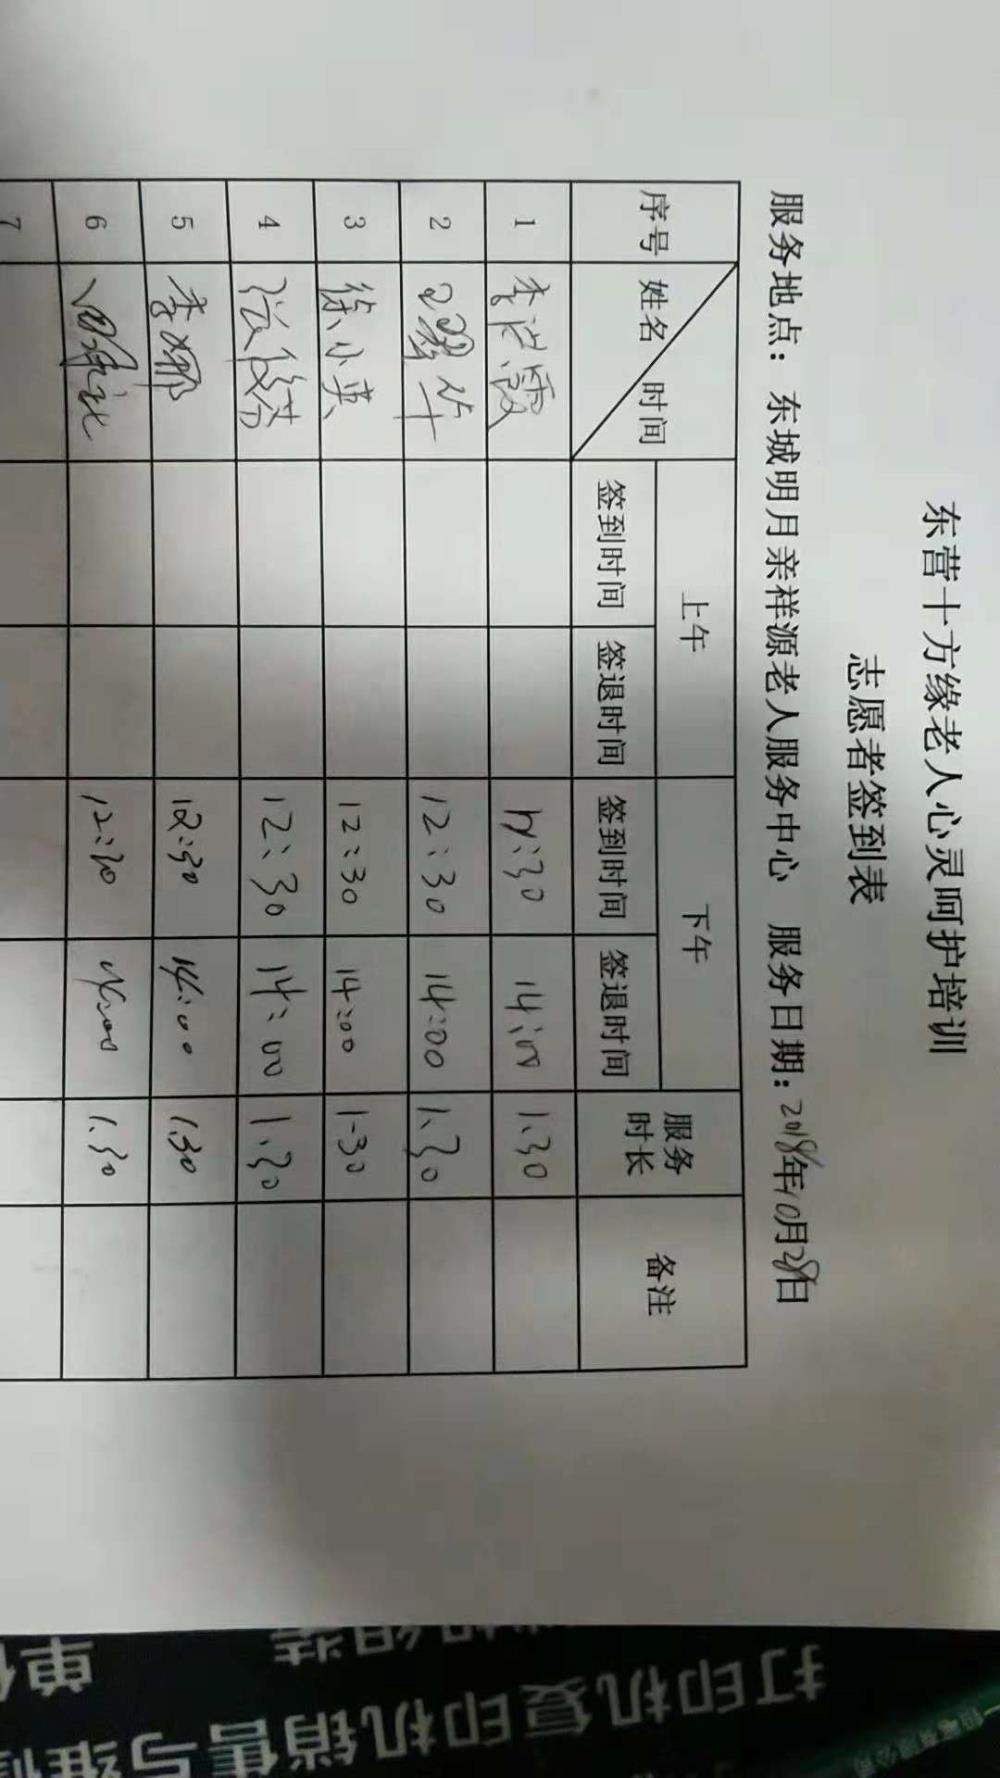 东营十方缘老人心灵呵护培训
志愿者签到表
服务地点：东城明月亲祥源老人服务中心 服务日期：2018年10月28日
序号 姓名 时间 上午 下午 服务时长 备注
签到时间 签退时间 签到时间 签退时间
1 12:30 14:00 1.30
2 12:30 14:00 1.30
3 徐小英 12:30 14:00 1-30
4 12:30 14:00 1.30
5 李娜 12:30 14:00 1.30
6 12:30 14:00 1.30
7
打印机复印机销售与维